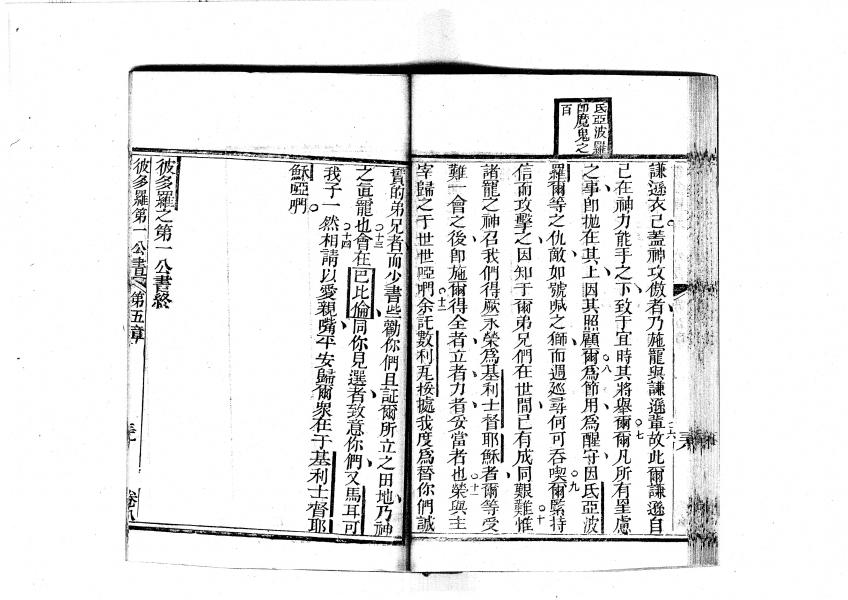 氐亞波羅
即魔鬼之
百
謙遜衣己蓋神攻傲者乃施寵與謙遜輩故此爾謙遜自
己在神力能手之下致于宜時其將舉爾爾凡所有罣慮
之事即抛在其上因其照顧爾爲節用爲醒守因氐亞波
羅爾等之仇敵如號喊之獅而週廵尋何可吞喫爾緊持
信而攻擊之因知于爾弟兄們在世間已有成同艱難惟
諸寵之神召我們得厥永榮爲基利士督耶穌者爾等受
難一會之後即施爾得全者立者力者妥當者也榮與主
宰歸之于世世啞們余託數利瓦挼處我度爲替你們誠
實的弟兄者而少書些勸你們且証爾所立之田地乃神
之眞寵也會在巴比倫同你見選者致意你們又馬耳可
我子一然相請以愛親嘴平安歸爾衆在于基利士督耶
穌啞們
彼多羅之第一公書終
彼多羅第一公書 第五章 卷八